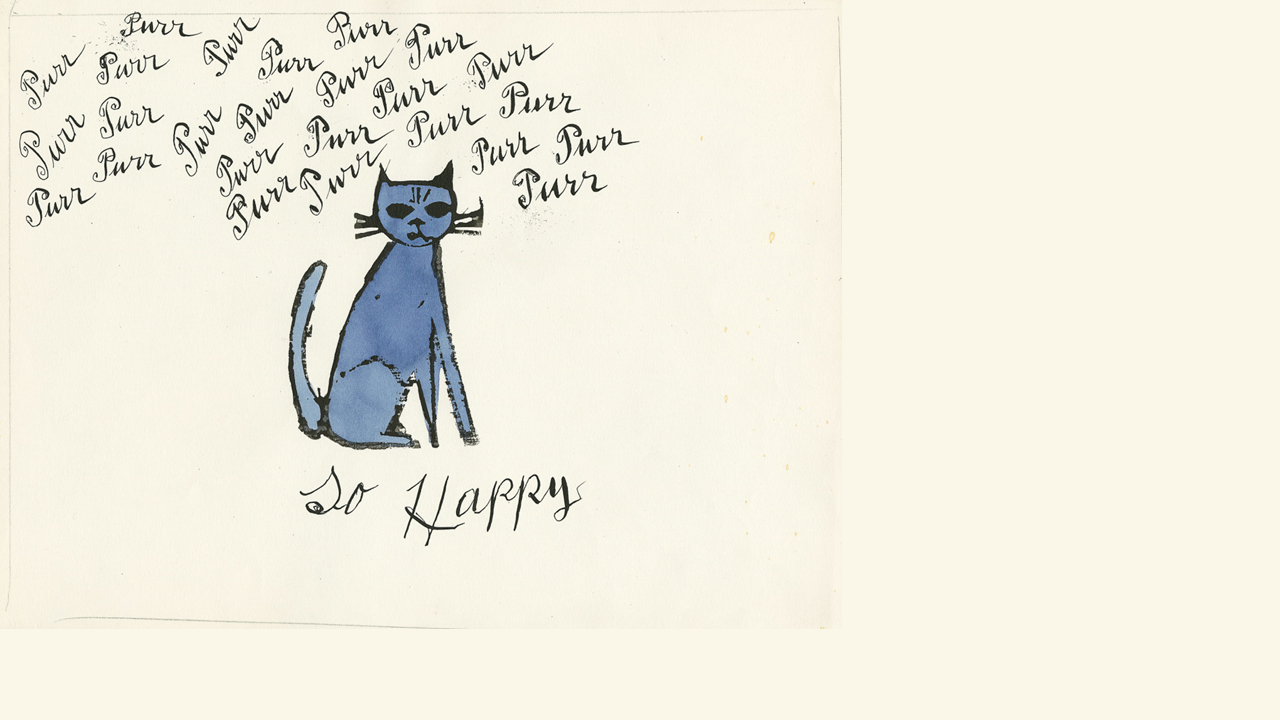 Purr Purr Purr
Purr Purr Purr Purr
Purr Purr Purr Purr
Purr Purr Purr Purr
Purr Purr Purr Purr Purr Purr
Purr Purr Purr Purr
So Happy